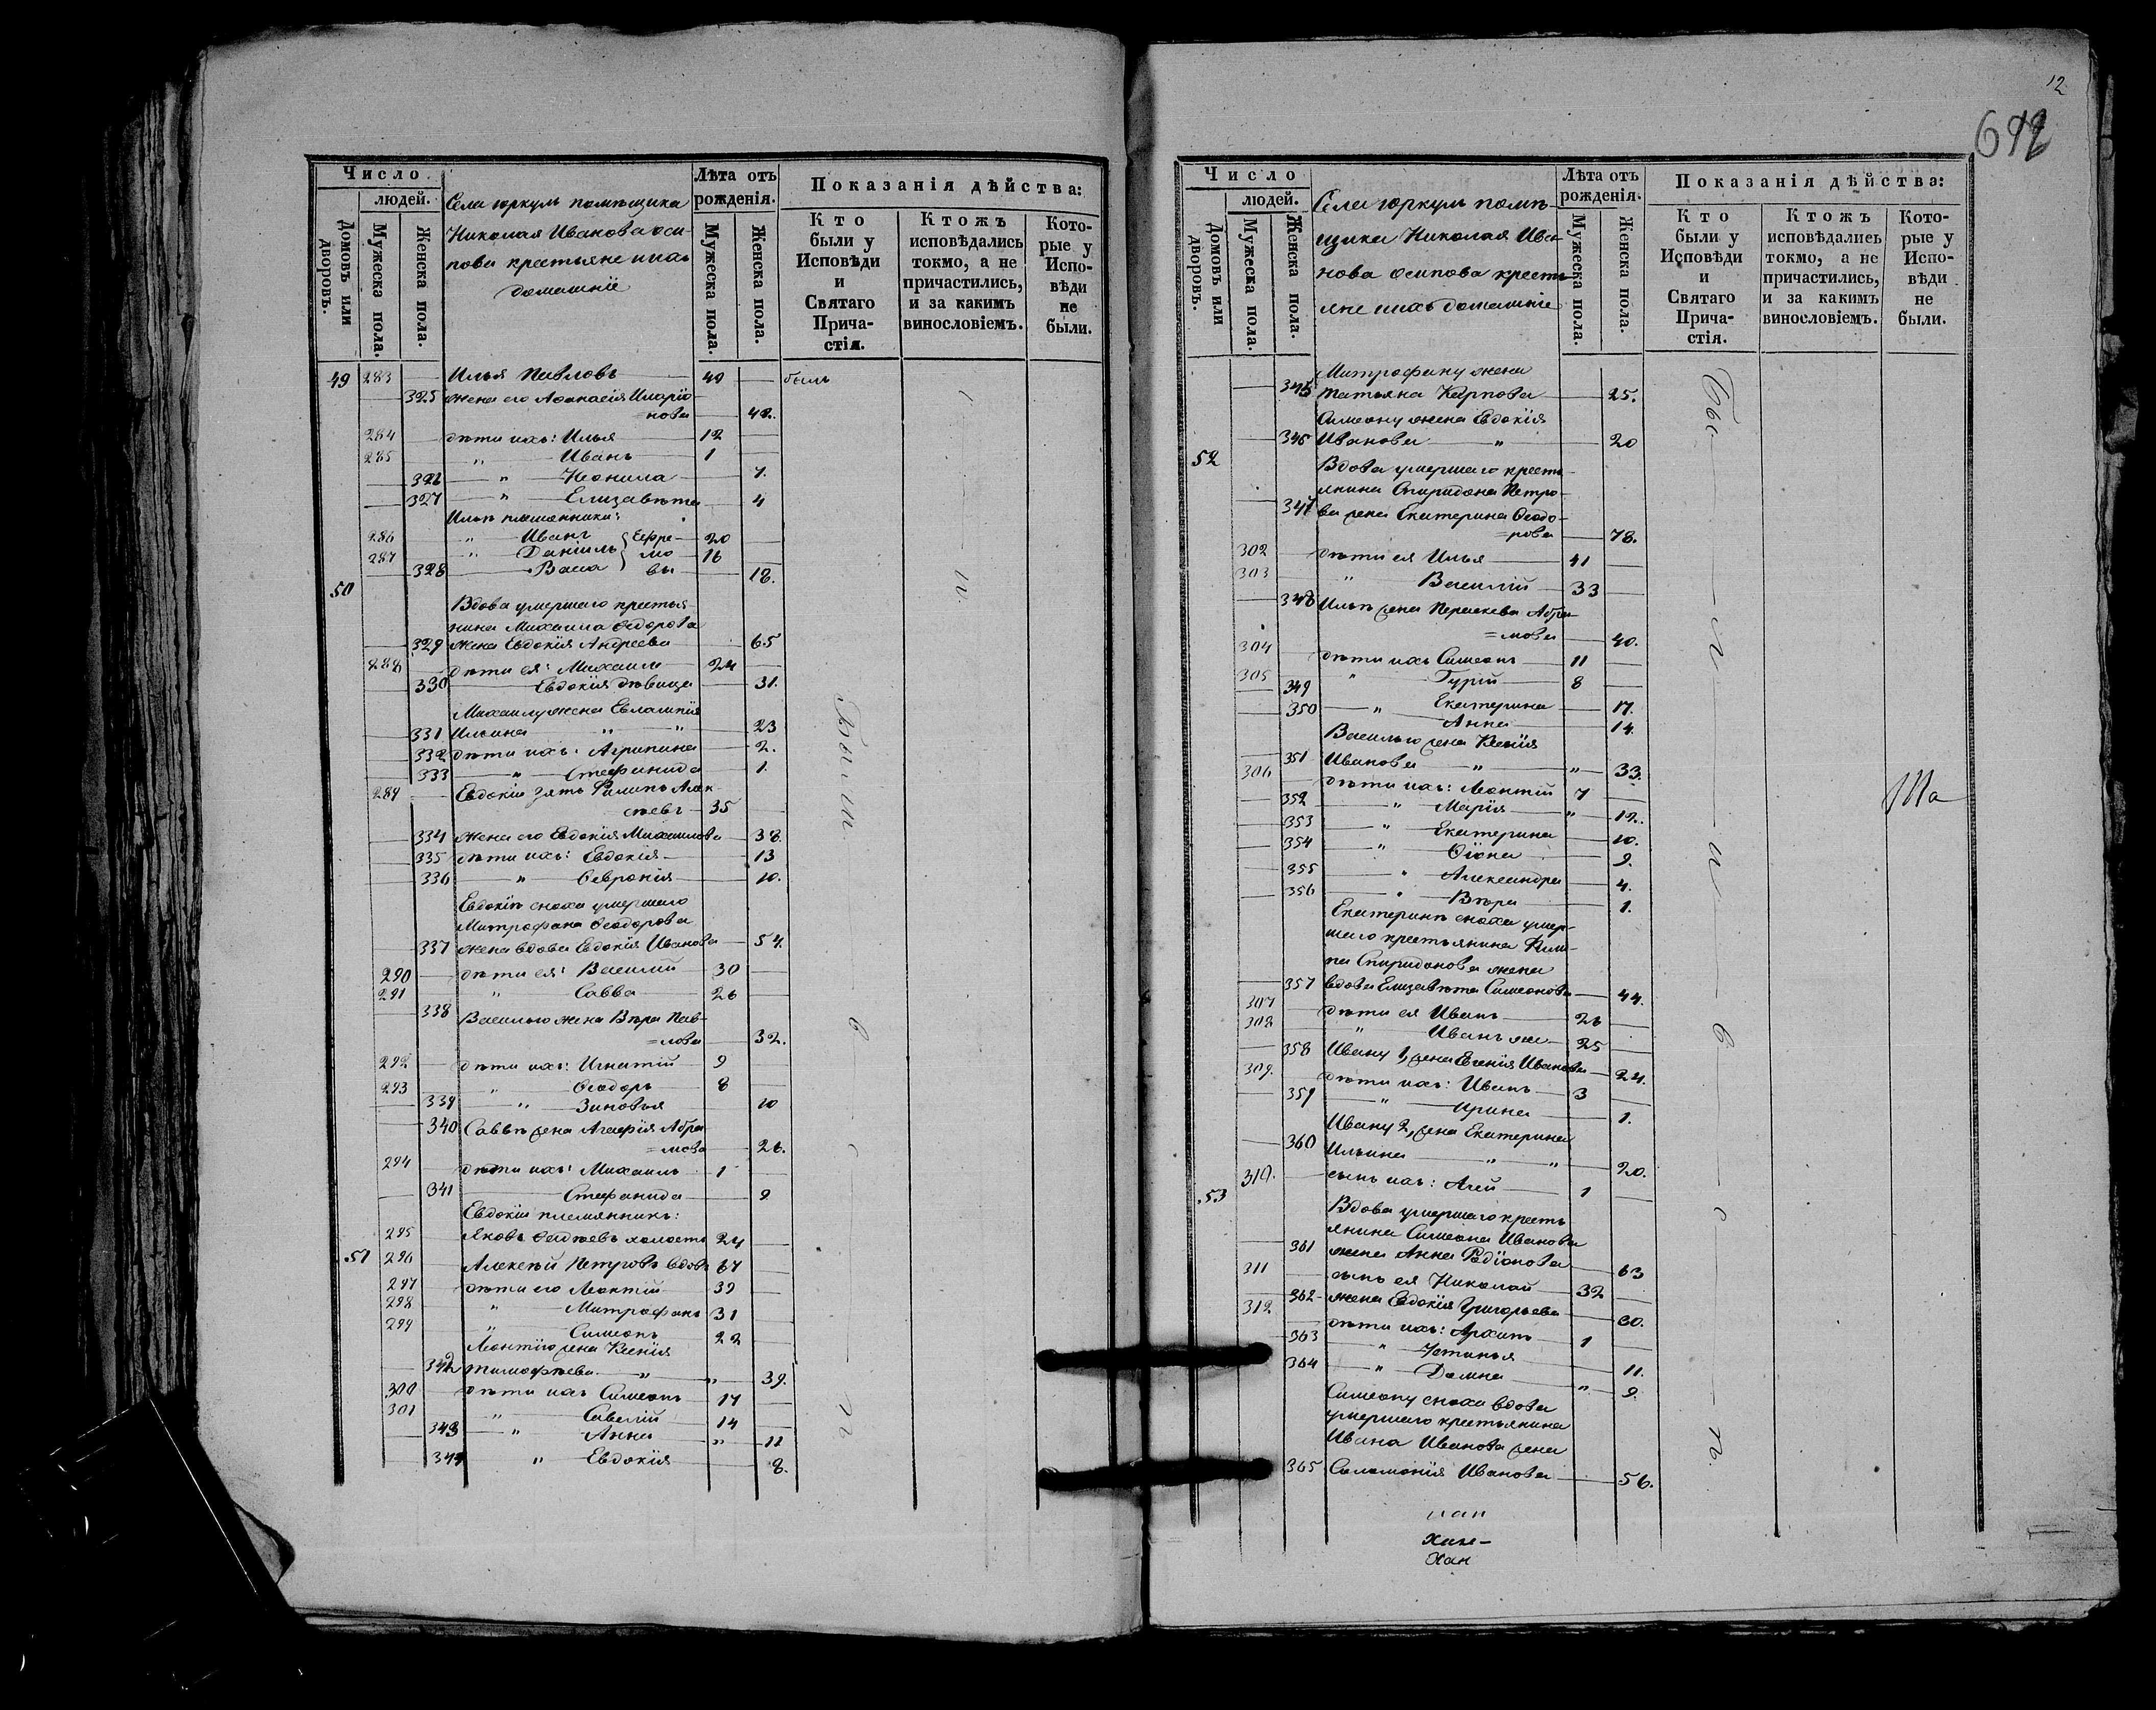 Число
людей.
Домовъ или дворовъ.
Мужеска пола.
Женска пола.
Села Юркулъ помѣщика
Николая Иванова Оси-
пова крестьяне и ихъ
домашніе
Лѣта отъ рожденія.
Мужеска пола.
Женска пола.
Показанія дѣйства:
Кто были у Исповѣди и Святаго Прича-стія.
Ктожъ исповѣдались токмо, а не причастились, и за какимъ винословіемъ.
Кото-рые у Испо-вѣди не были.
49 283 Илья Павловъ 49 былъ
325 жена его Афанасія Иларіо-
=нова 42.
284 дѣти ихъ: Илья 12
285 „ Иванъ 1
326 „ Неонила 7.
327 „ Елизавѣта 4
Ильѣ племянники:
286 „ Иванъ Ефре- 20
287 „ Даніилъ мо 16
328 Васа вы 18.
50
Вдова умершаго крестья
нина Михаила Ѳедорова
329 жена Евдокія Андреева 65
288 дѣти ея: Михаилъ 24
330 Евдокія дѣвица 31.
Михаилу жена Евлампія
331 Ильина „ „ 23
332 дѣти ихъ: Агрипина 2.
333 „ Стефанида 1.
289 Евдокіи зять Филипъ Алек-
сѣевъ 35
334 жена его Евдокія Михаилова 38.
335 дѣти ихъ: Евдокія 13
336 „ Февронія 10.
Евдокіи сноха умершаго
Митрофана Ѳеодорова
337 жена вдова Евдокія Иванова 54.
290 дѣти ея: Василій 30
291 „ Савва 26
338 Василью жена Вѣра Пав-
=лова 32.
292 дѣти ихъ: Игнатій 9
293 „ Ѳеодоръ 8
339 „ Зиновья 10
340 Саввѣ жена Агафія Абра
=мова 26.
294 дѣти ихъ: Михаилъ 1
341 Стефанида 9
Евдокіи племянникъ:
295 Яковъ холостъ 24
51 296 Алексѣй Петровъ вдовъ 67
297 дѣти его Леонтій 39
298 „ Митрофанъ 31
299 „ Симеонъ 22
Леонтію жена Ксенія
342 Тимофѣева „ „ 39.
300 дѣти ихъ Симеонъ 17
301 „ Савелій 14
343 „ Анна „ 11
344 „ Евдокія 8.
12
692
Число
людей.
Домовъ или дворовъ.
Мужеска пола.
Женска пола.
Села Юркулъ помѣ-
щика Николая Ива-
нова Осипова кресть
яне и ихъ домашніе
Лѣта отъ рожденія.
Мужеска пола.
Женска пола.
Показанія дѣйства:
Кто были у Исповѣди и Святаго Прича-стія.
Ктожъ исповѣдались токмо, а не причастились, и за какимъ винословіемъ.
Кото-рые у Испо-вѣди не были.
Митрофану жена
345 Татьяна Карпова 25.
Симеону жена Евдокія
346 Иванова „ 20
52
Вдова умершаго кресть
янина Спиридона Петро-
347 ва жена Екатерина Ѳеодо-
=рова 78.
302 дѣти ея Илья 41
303 „ Василій 33
348 Ильѣ жена Параскева Абра
=мова 40.
304 дѣти ихъ Симеонъ 11
305 „ Гурій 8
349 „ Екатерина 17.
350 Анна 14.
Василью жена Ксенія
351 Иванова „ „ 33.
306 дѣти ихъ: Леонтій 7
352 „ Марія „ 12.
353 „ Екатерина 10.
354 „ 9.
355 „ Александра 4.
356 „ Вѣра 1.
Екатеринѣ сноха умер-
шаго крестьянина Фили-
па Спиридонова жена
357 вдова Елизавѣта Симеонова 44.
307 дѣти ея Иванъ 26
308 „ Иванъ же 25
358 Ивану 1, жена Евгенія Иванова 24.
309. дѣти ихъ: Иванъ 3
359 „ Ирина 1.
Ивану 2, жена Екатерина
360 Ильина „ „ 20.
310. сынъ ихъ: Агей 1
53
Вдова умершаго кресть
янина Симеона Иванова
361 жена Анна Родіонова 63
311 сынъ ея Николай 32
362 жена Евдокія Григорьева 30.
312 дѣти ихъ: Архипъ 1
363 „ Устинья 11.
364 „ Домна „ 9.
Симеону сноха вдова
умершаго крестьянина
Ивана Иванова жена
365 Саломонія Иванова 56.